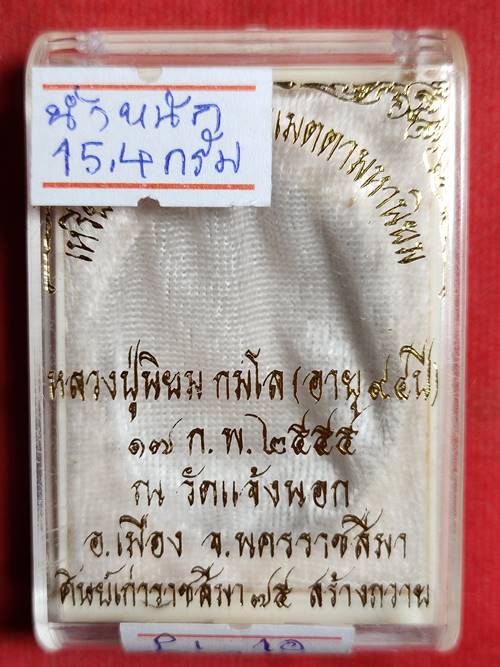 น้ำหนัก
15.4 กรัม
เมตตามหานิยม
หลวงปู่นิยม กมโล (อายุ ๙๔ ปี)
๑๗ ก.พ. ๒๕๕๕
ณ วัดแจ้งนอก
อ.เมือง จ.นครราชสีมา
ศิษย์เก่าราชสีมา ๗๕ สร้างถวาย